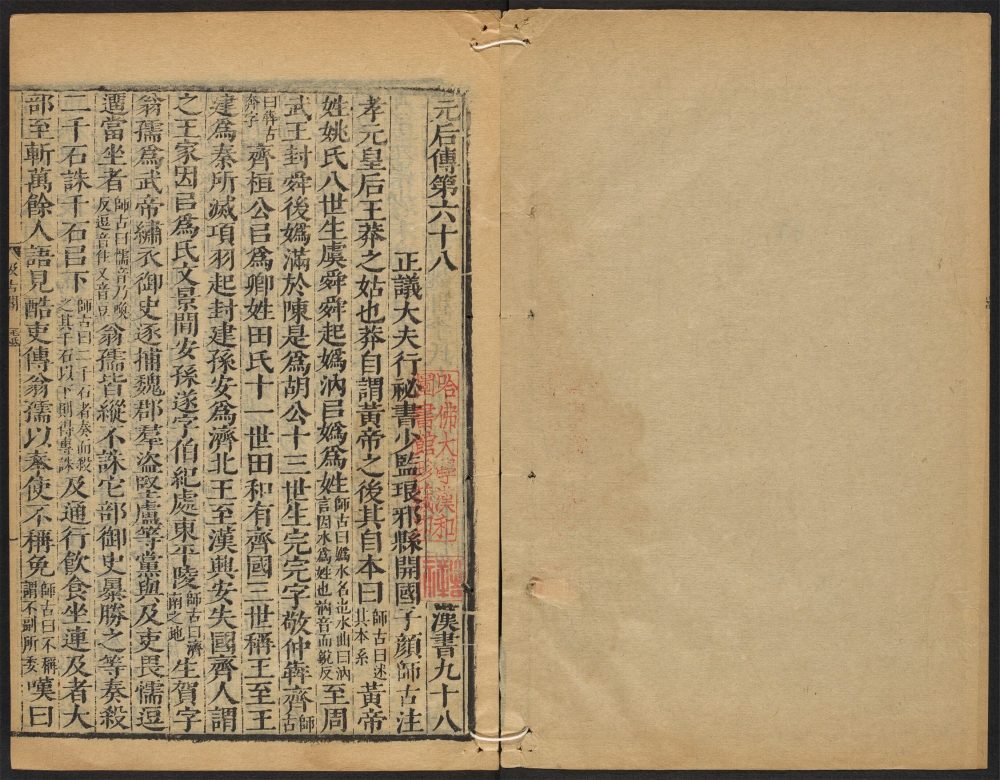 元后傳第六十八 漢書九十八
正議大夫行祕書少監琅邪縣開國子顏師古注
孝元皇后王莽之姑也莽自謂黃帝之後其自本曰師古曰述其本系黃帝
姓姚氏八世生虞舜舜起嬀汭㠯嬀為姓師古曰嬀水名也水曲曰汭言因水為姓也汭音而銳反至周
武王封舜後嬀滿於陳是為胡公十三世生完完字敬仲犇齊師古曰犇古奔字
齊桓公㠯為卿姓田氏十一世田和有齊國三世稱王至王
建為秦所滅項羽起封建孫安為濟北王至漢興安失國齊人謂
之王家因㠯為氏文景間安孫遂字伯紀處東平陵師古曰濟南之地生賀字
翁孺為武帝繡衣御史逐捕魏郡羣盜堅盧等黨與及吏畏懦逗
遛當坐者師古曰懦音乃喚反逗音住又音豆翁孺皆縱不誅它部御史暴勝之等奏殺
二千石誅千石㠯下師古曰二千石者奏而殺之其千石以下則得專誅及通行飲食坐連及者大
部至斬萬餘人語見酷吏傳翁孺以奉使不稱免師古曰不稱謂不副所委嘆曰
汲古閣
哈佛大學漢和
圖書館珍藏印